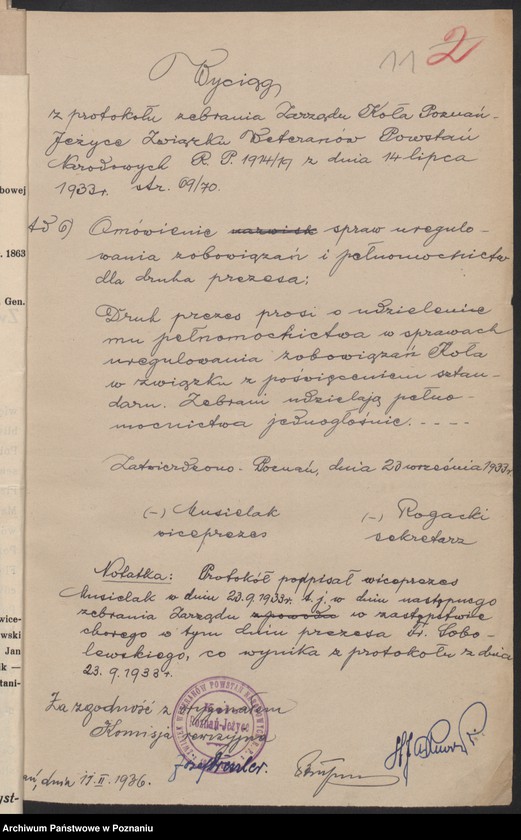 11 2
Wyciąg
z protokołu zebrania Zarządu Koła Poznań-
Jeżyce Związku Weteranów Powstań
Narodowych R. P. 1914/19 z dnia 14 lipca
1933r. str. 69/70.
Ad 6) Omówienie nazwisk spraw uregulo-
wania zobowiązań i pełnomocnictw
dla druha prezesa;
Druh prezes prosi o udzielenie
mu pełnomocnictwa w sprawach
uregulowania zobowiązań Koła
w związku z poświęceniem sztan-
daru. Zebrani udzielają pełno-
mocnictwa jednogłośnie. - - - -
Zatwierdzono - Poznań, dnia 23 września 1933r
(-) Musielak (-) Rogacki
viceprezes sekretarz
Notatka: Protokół podpisał wiceprezes
Musielak w dniu 23.9.1933r. t. j. w dniu następnego
zebrania Zarządu w zastępstwie
chorego w tym dniu prezesa St. Sobo-
lewskiego, co wynika z protokołu z dnia
23.9.1933r.
Za zgodność z oryginałem
Komisja rewizyjna
ZWIĄZEK WETERANÓW POWSTAŃ NARODOWYCH R. P.
Poznań-Jeżyce
dnia 11.II.1936.
bowej
. 1863
Gen.
wice-
wski
Jan
ik —
tani-
yst-
Archiwum Państwowe w Poznaniu